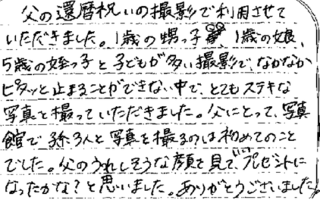 父の還暦祝いの撮影で利用させて
いただきました。1歳の甥っ子、1歳の娘、
5歳の姪っ子と子どもが多い撮影で、なかなか
ピタッと止まることができない中で、とてもステキな
写真を撮っていただきました。父にとって、写真
館で孫3人と写真を撮るのは初めてのこと
でした。父のうれしそうな顔を見て、いいプレゼントに
なったかな?と思いました。ありがとうございました